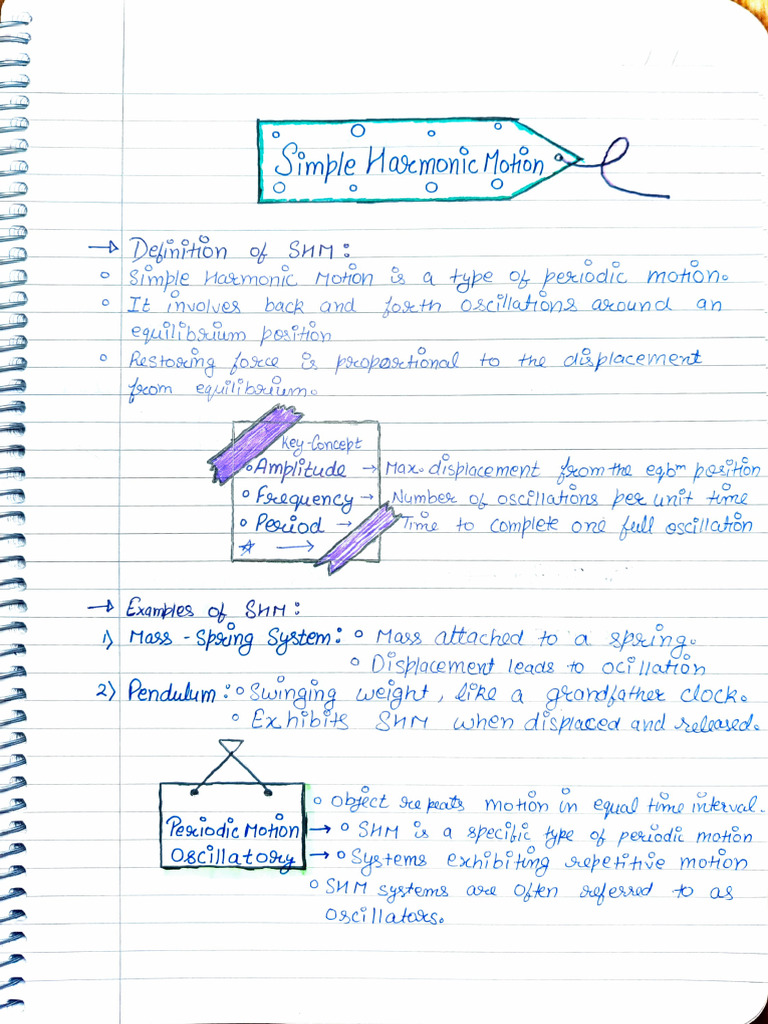 Simple Harmonic Motion
→ Definition of SHM:
○ Simple Harmonic Motion is a type of periodic motion.
○ It involves back and forth oscillations around an
equilibrium position
○ Restoring force is proportional to the displacement
from equilibrium.
Key-Concept
○ Amplitude → Max. displacement from the eqbm position
○ Frequency → Number of oscillations per unit time
○ Period → Time to complete one full oscillation
☆ →
→ Examples of SHM:
1) Mass - Spring System: ○ Mass attached to a spring.
○ Displacement leads to ocillation
2) Pendulum: ○ Swinging weight, like a grandfather clock.
○ Exhibits SHM when displaced and released.
○ Object repeats motion in equal time interval.
Periodic Motion → ○ SHM is a specific type of periodic motion
Oscillatory → ○ Systems exhibiting repetitive motion
○ SHM systems are often referred to as
oscillators.